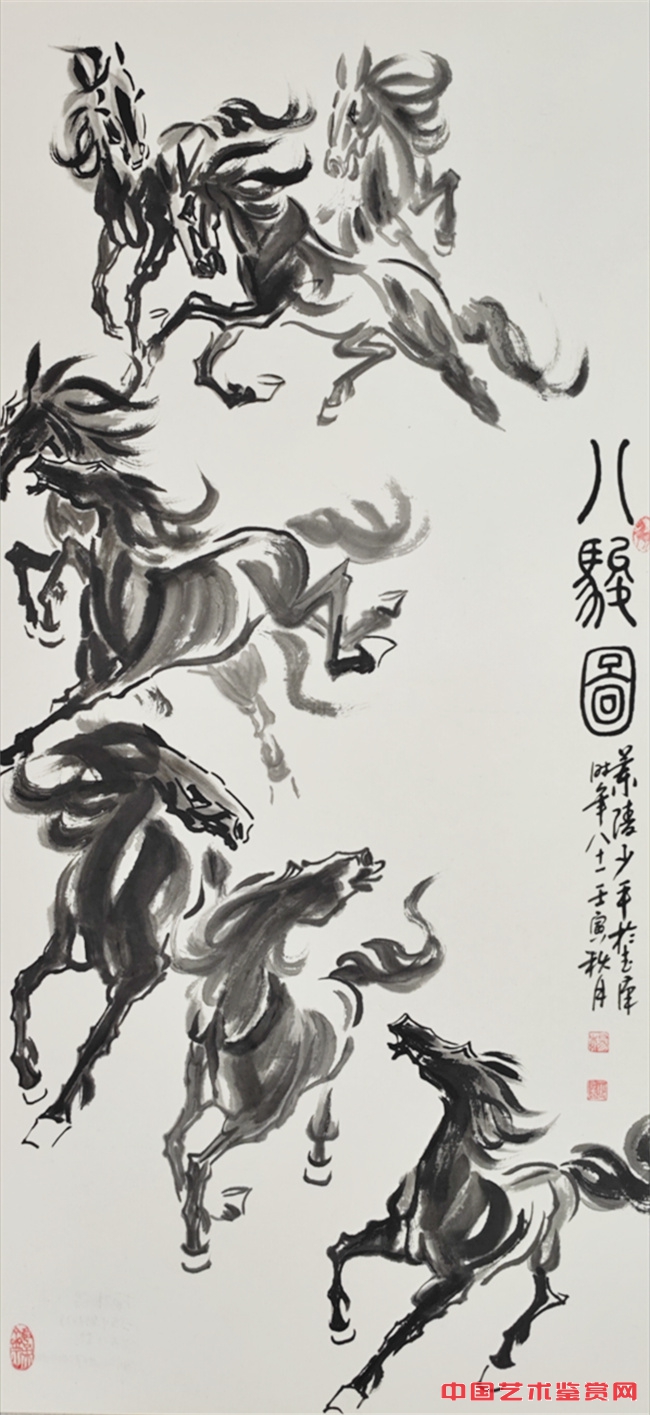 八駿圖
陵少平於
時年八十一壬寅秋月
中国艺术鉴赏网